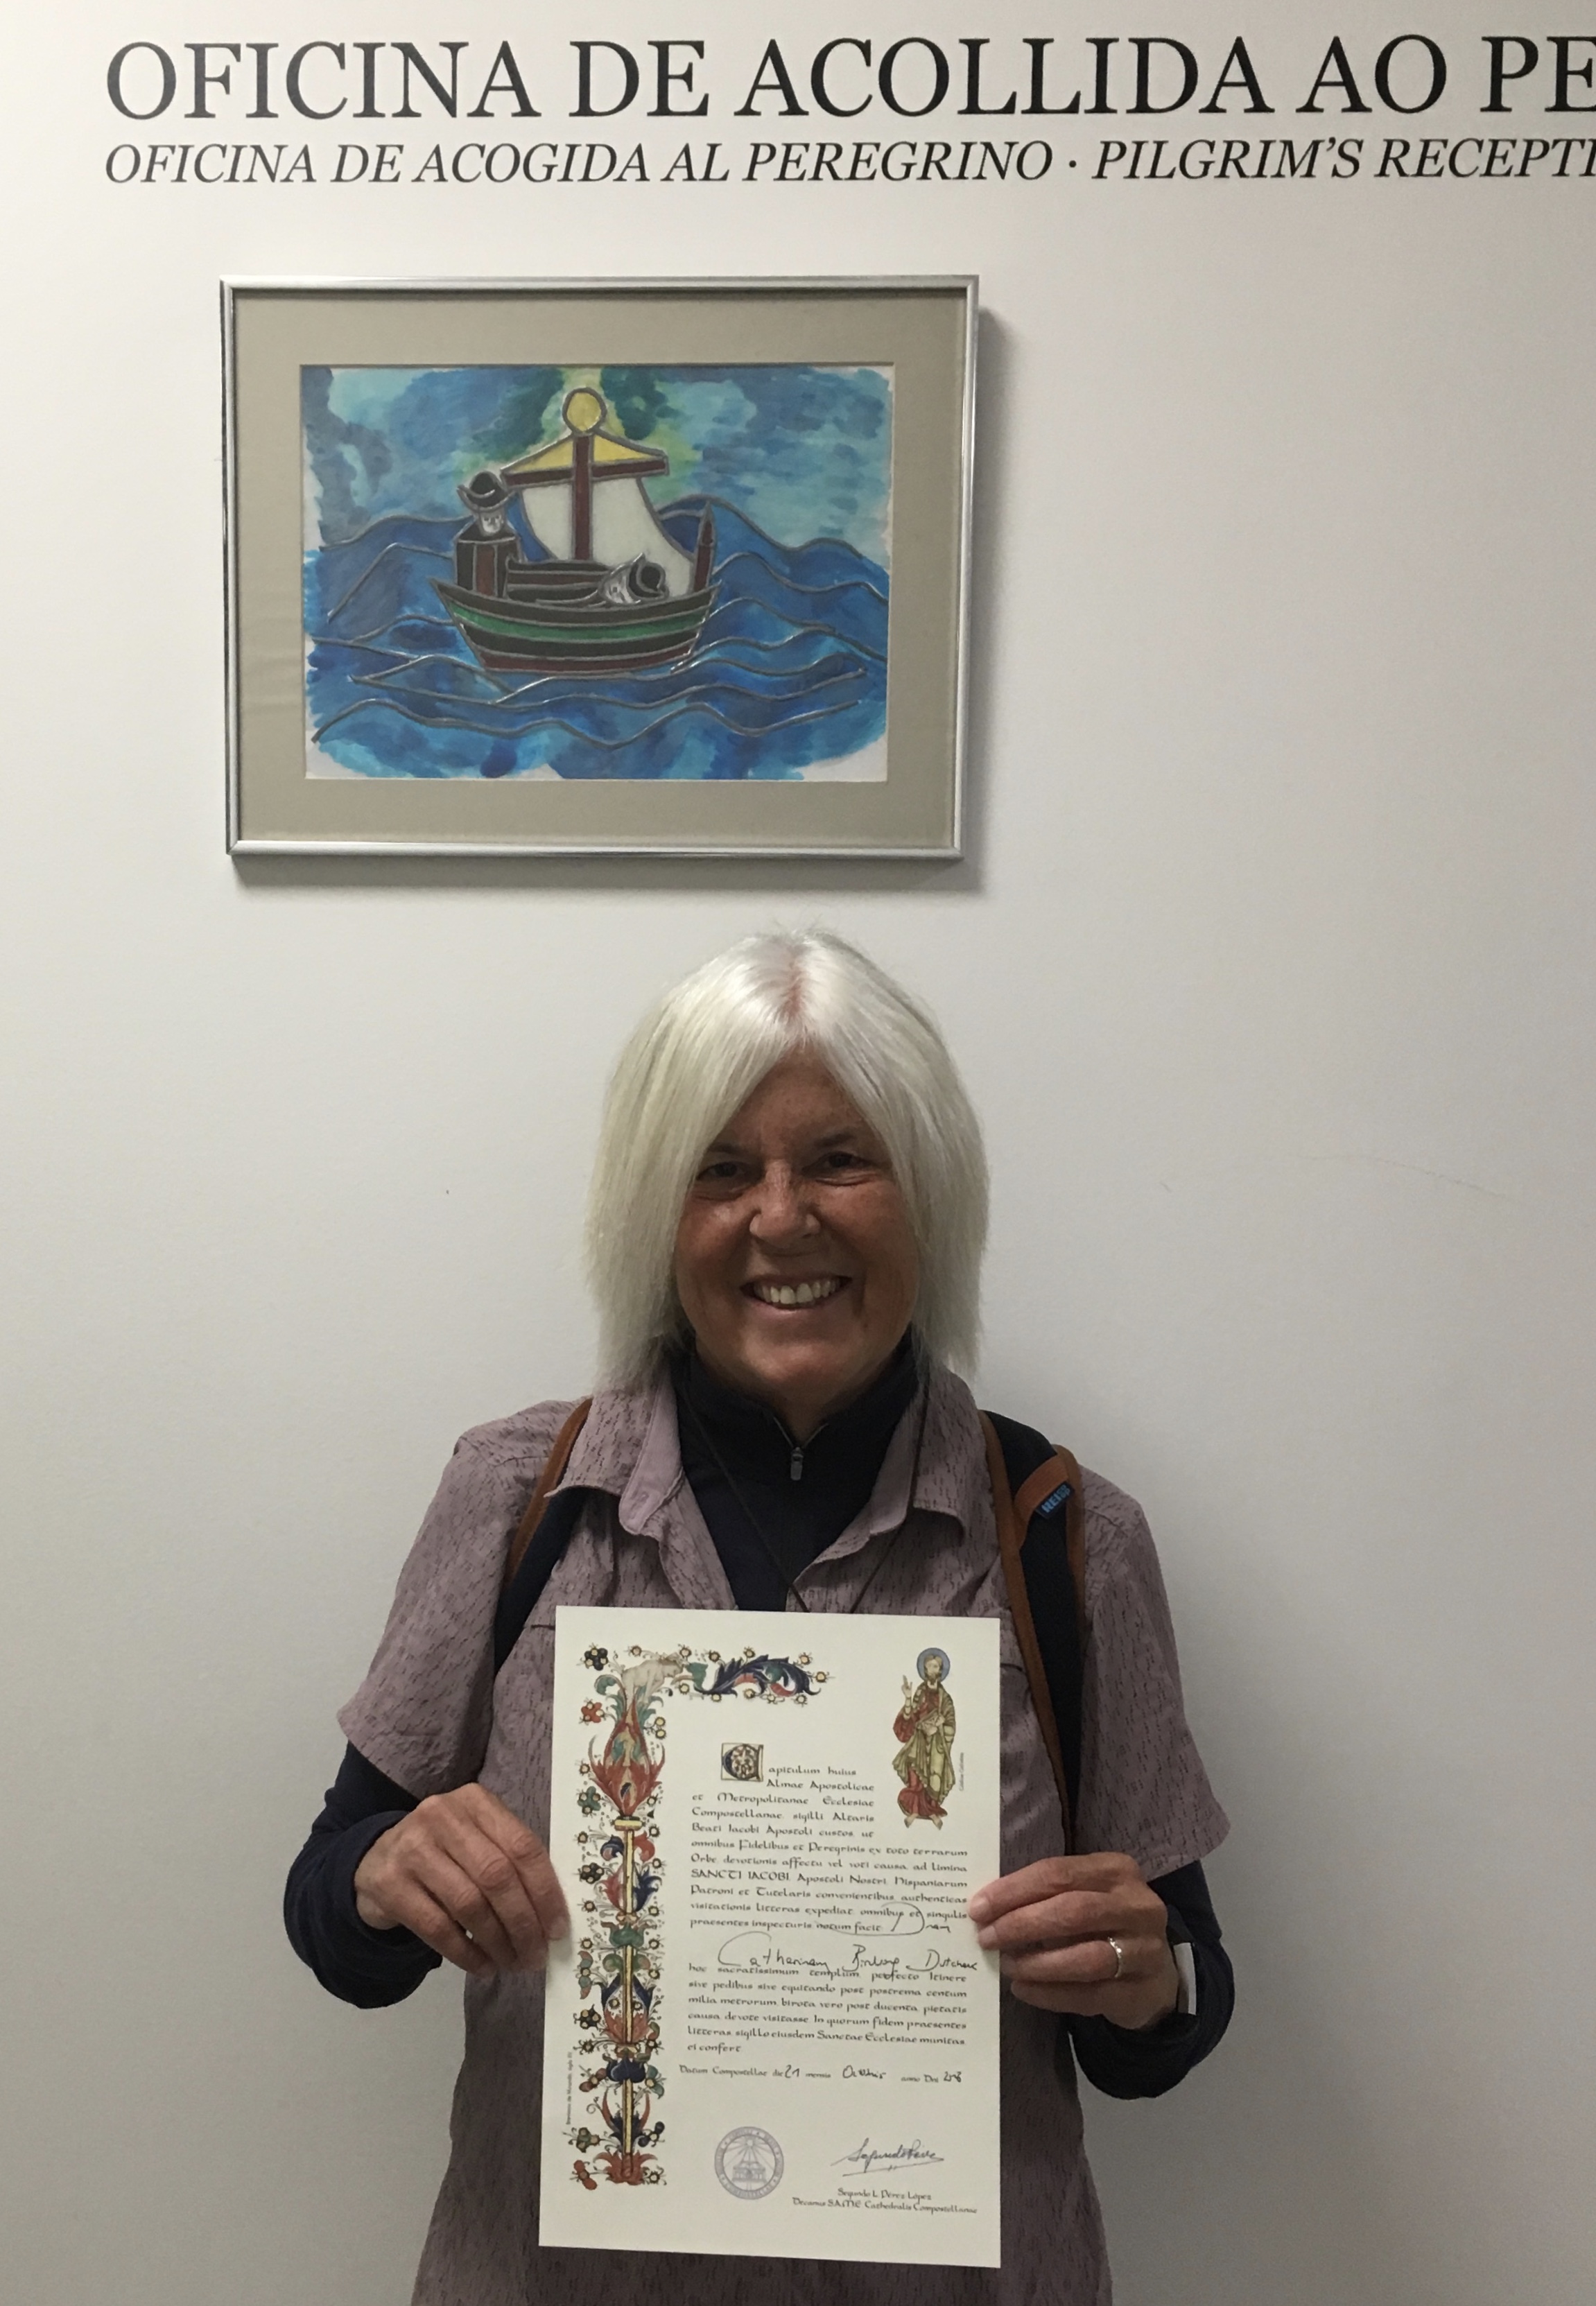 OFICINA DE ACOLLIDA AO PE
OFICINA DE ACOGIDA AL PEREGRINO · PILGRIM'S RECEPTI
Capitulum huius
Almae Apostolicae
et Metropolitanae Ecclesiae
Compostellanae sigilli Altaris
Beati Iacobi Apostoli custos, ut
omnibus Fidelibus et Peregrinis ex toto terrarum
Orbe devotionis affectu vel voti causa ad limina
SANCTI IACOBI Apostoli Nostri Hispaniarum
Patroni et Tutelaris convenientibus authenticas
visitationis litteras expediat, omnibus et singulis
praesentes inspecturis notum facit: Dnam
Catharinam
hoc sacratissimum templum perfecto Itinere
sive pedibus sive equitando post postrema centum
milia metrorum, birota vero post ducenta, pietatis
causa devote visitasse. In quorum fidem praesentes
litteras, sigillo eiusdem Sanctae Ecclesiae munitas,
ei confert.
Datum Compostellae die 21 mensis anno Dni
Segundo L. Pérez López
Decanus S.A.M.E. Cathedralis Compostellanae